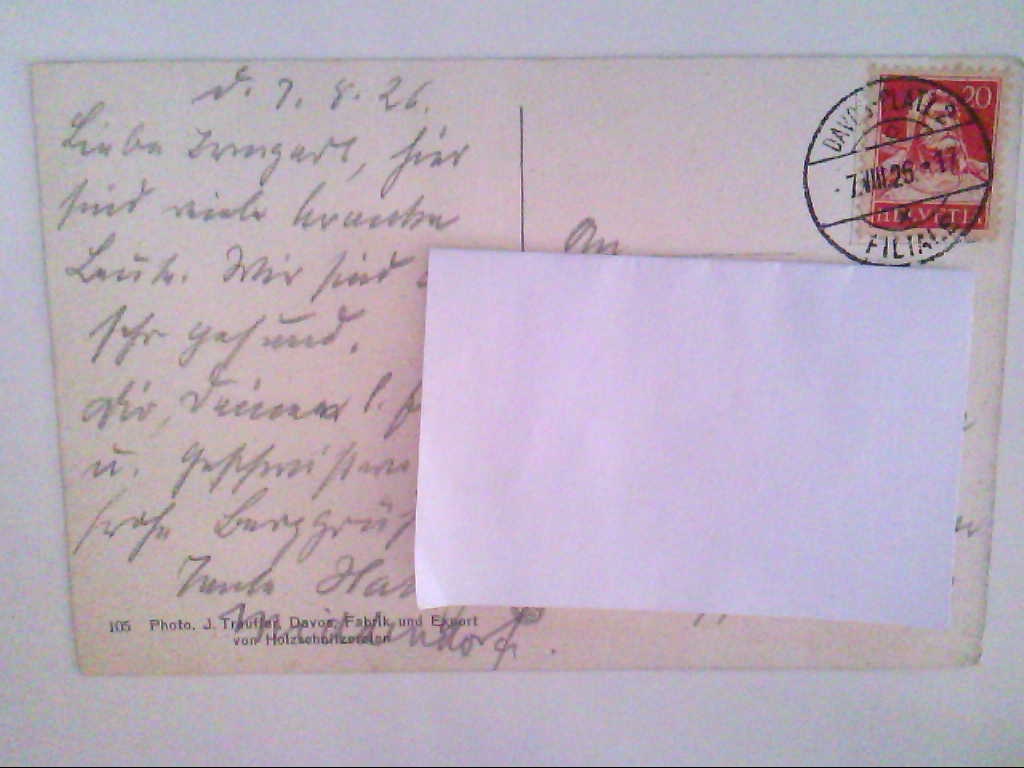 d. 7. 8. 26.
Liebe Irmgart, hier
sind viele kranke
Leute. Wir sind
sehr gesund.
Dir, Deinen l.
u. Geschwistern
frohe Berggrüß
Tante
105 Photo. J. Trauffer, Davos, Fabrik und Export
von Holzschnitzereien
An
DAVOS-PLATZ 2
7.VIII.26 - 17
FILIALE
20
HELVETIA